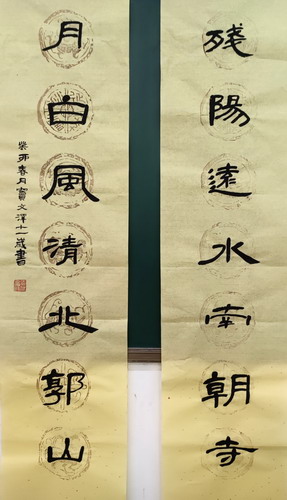 残陽遠水南朝寺
月白風清北郭山
癸卯春月竇文澤十一歲書